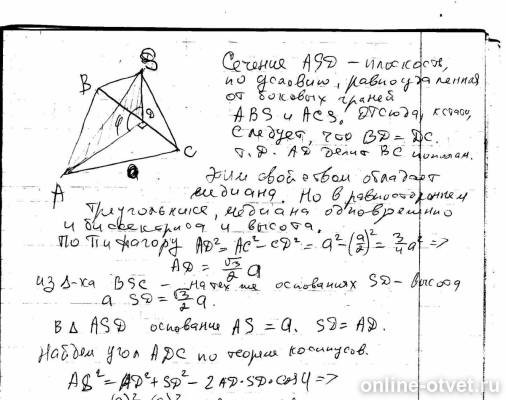 S
B
φ
D
C
A
a
Сечение ASD – плоскость,
по условию, равноудаленная
от боковых граней
ABS и ACS. Отсюда, кстати,
следует, что BD = DC.
Т.Д. AD делит BC пополам.
Этим свойством обладает
медиана. Но в равностороннем
треугольнике, медиана одновременно
и биссектриса и высота.
По Пифагору AD² = AC² - CD² = a² - (a/2)² = 3/4 a² =>
AD = √3/2 a
из Δ-ка BSC – на тех же основаниях SD – высота
а SD = √3/2 a.
В Δ ASD основание AS = a. SD = AD.
Найдем угол ADC по теореме косинусов.
AS² = AD² + SD² - 2AD·SD·cosφ =>
online-otvet.ru